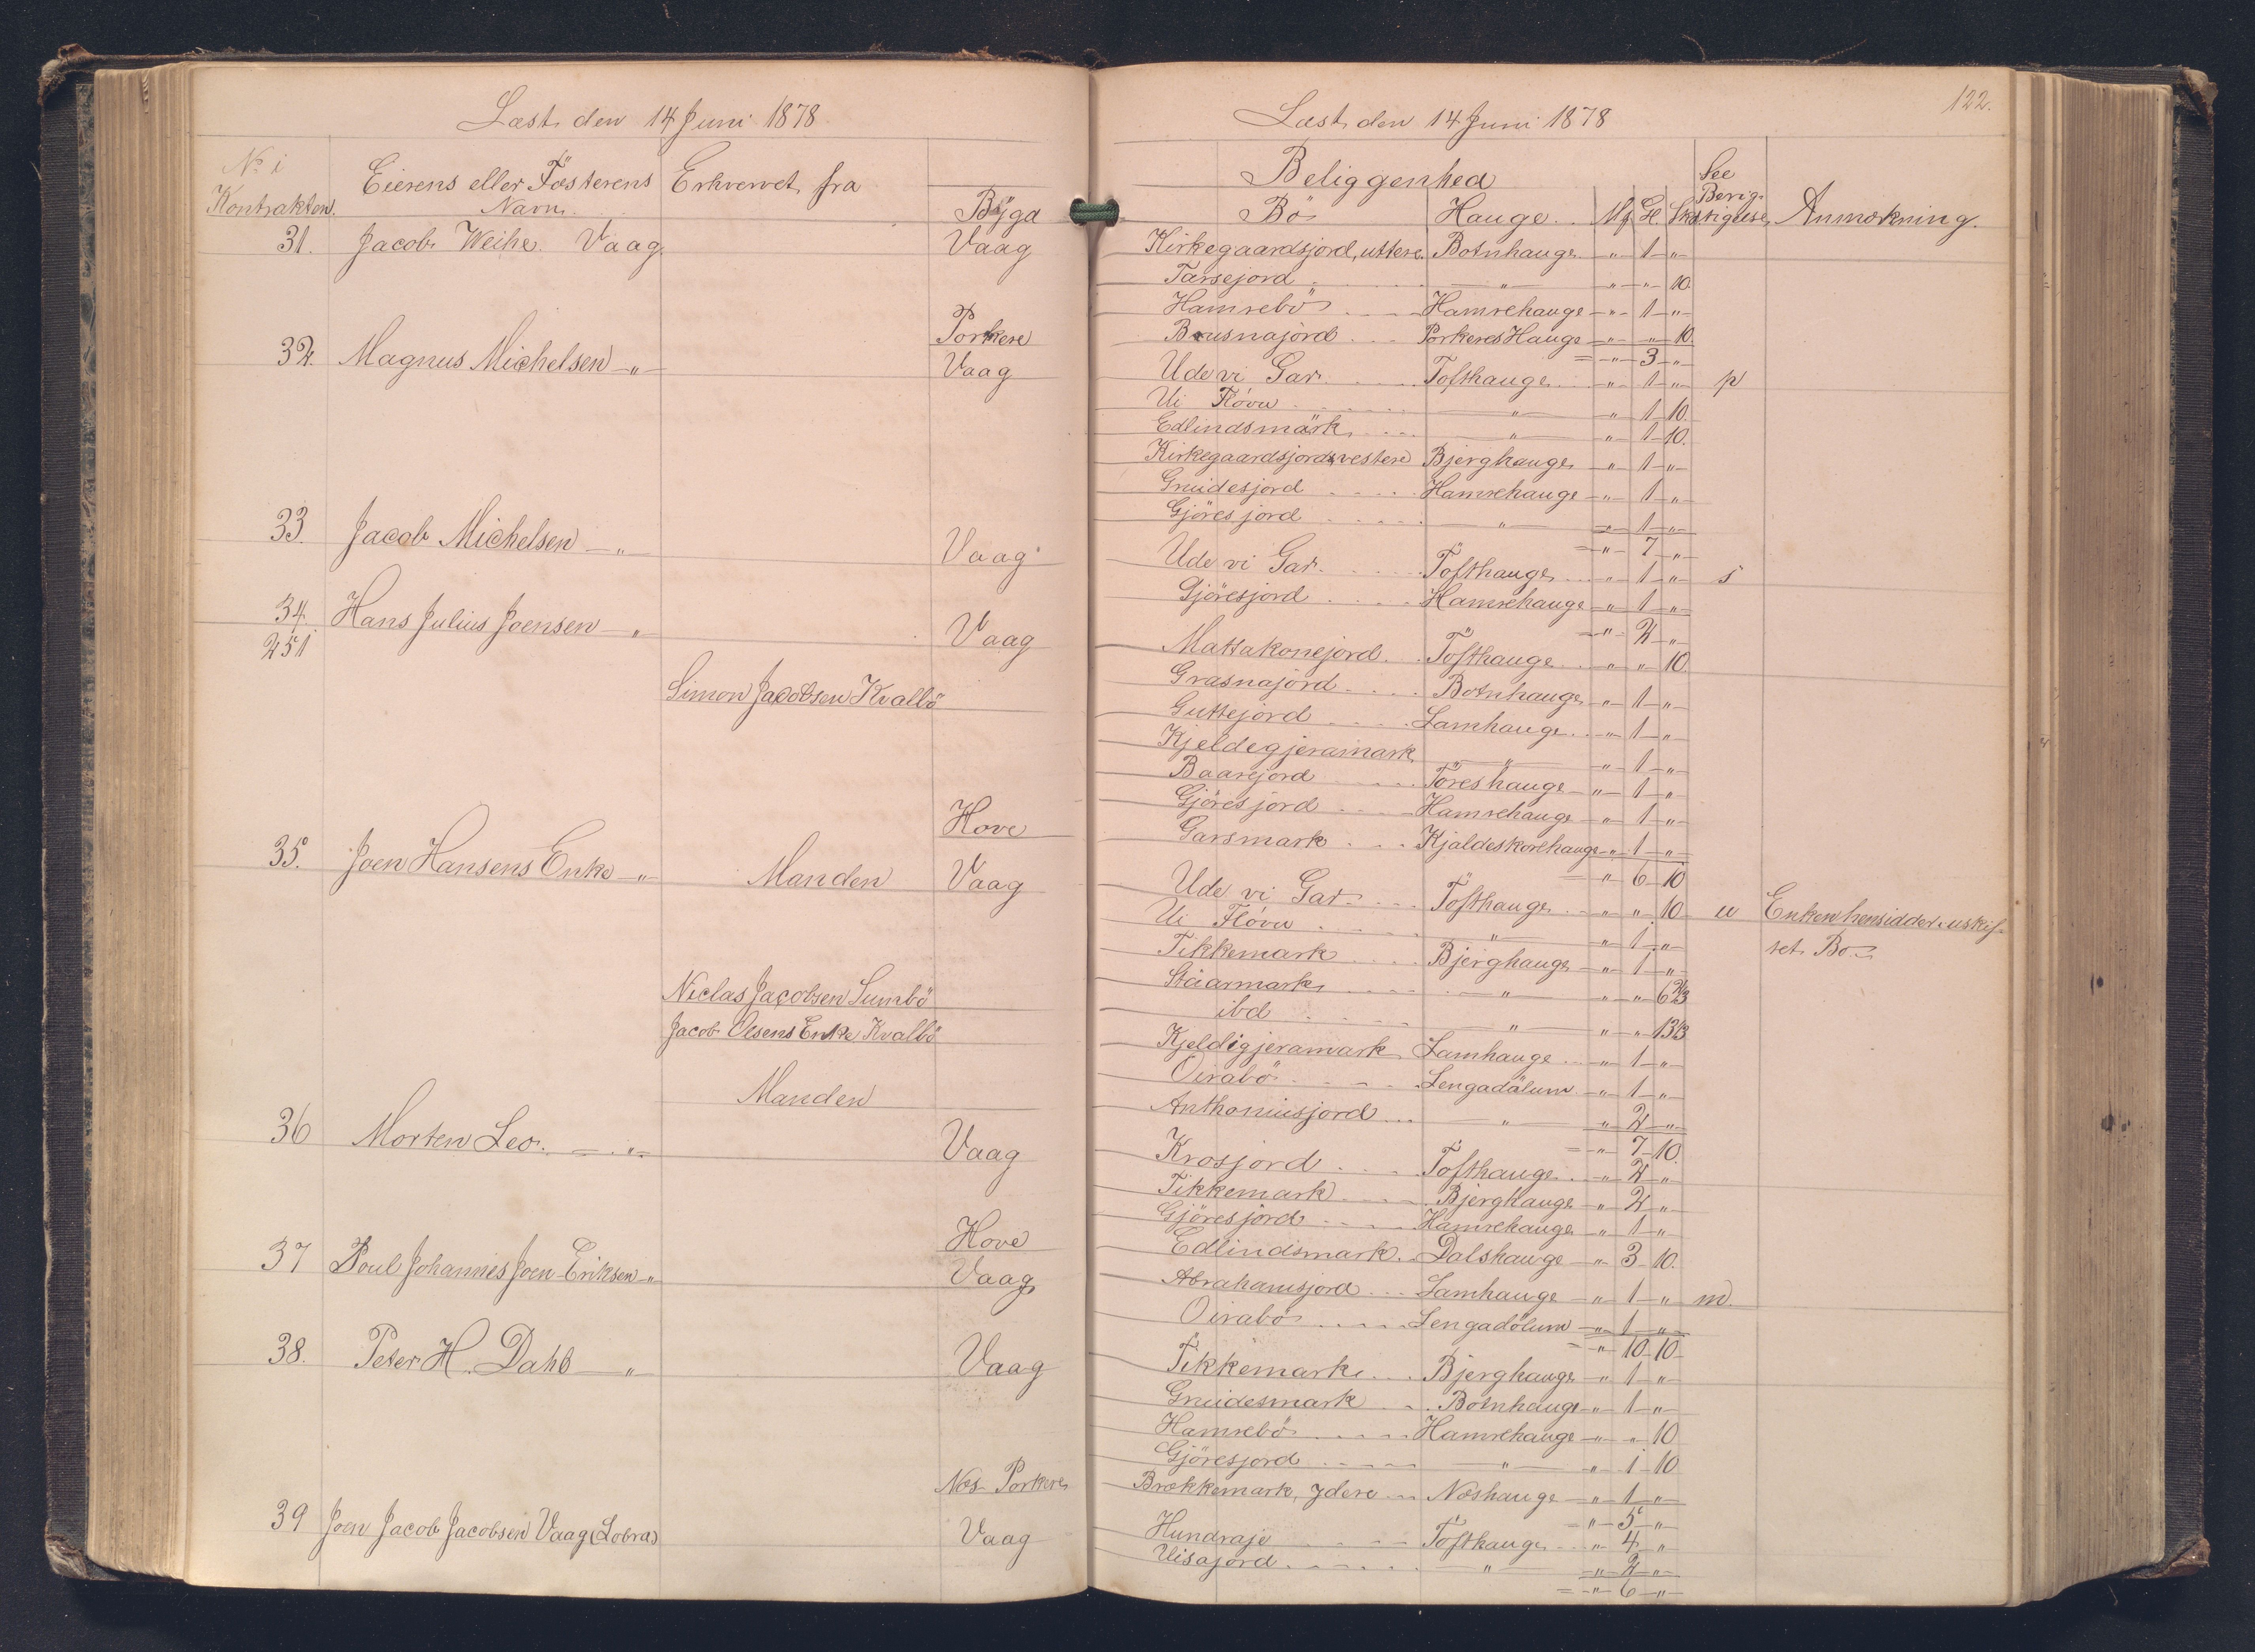 Læst den 14 Juni 1878
No i Kontrakten. Eierens eller Fæsterens Navn. Erhvervet fra Bÿgd
31. Jacob Weihe. Vaag. Vaag
Porkere
32. Magnus Michelsen -"- Vaag
33. Jacob Michelsen -"- Vaag
34. Hans Julius Joensen -"- Vaag
251
Simon Jacobsen Kvalbö
Hove
35. Joen Hansens Enke -"- Manden Vaag
Niclas Jacobsen Sumbö
Jacob Olsens Enke Kvalbö
Manden
36 Morten Leo. -"- Vaag
Hove
37 Poul Johannes Joen Eriksen -"- Vaag
38. Peter H. Dahl -"- Vaag
Næs Porkere
39 Joen Jacob Jacobsen Vaag (Lobra) Vaag
122.
Læst den 14 Juni 1878
Beliggenhed See Berigtigelse
Bö Hauge. Mk Gl. Sk. Anmærkning.
Kirkegaardsjord, uttere. Botnhauge - " - 1 - " -
Tarsejord " - " - " - 10.
Hamrebö Hamrehauge - " - 1 - " -
Brusnajörd Porkeres Hauge - " - " - 10.
= - " - 3 - " -
Ude vi Gar. Töfthauge - " - 1 - " - p
Ui Flóvu " - " - 1 - 10.
Edlindsmärk " - " - 1 - 10.
Kirkegaardsjord, vestere Bjerghauge - " - 1 - " -
Gruidesjord Hamrehauge - " - 1 - " -
Gjöresjord " - " - 1 - " -
= - " - 7 - " -
Ude vi Gar. Töfthauge - " - 1 - " - s
Gjöresjord Hamrehauge - " - 1 - " -
= - " - 2 - " -
Mattakonejord Töfthauge - " - " - 10.
Grasnajörd Botnhauge - " - 1 - " -
Guttejord Lamhauge - " - 1 - " -
Kjeldegjeramark " - " - 1 - " -
Baarejord Töreshauge - " - 1 - " -
Gjöresjord Hamrehauge - " - 1 - " -
Garsmark Kjaldeskorehauge - " - 1 - " -
= - " - 6 - 10
Ude vi Gar Töfthauge - " - " - 10 u Enken hensidder i uskif-
Ui Flóvu " - " - 1 - " - tet Bo.
Tikkemark Bjerghauge - " - 1 - " -
Stáarmark " - " - " - 6 2/3
ibd " - " - " - 13 1/3
Kjeldigjeramark Lamhauge - " - 1 - " -
Oirabö Lengadälum - " - 1 - " -
Anthoniusjord " - " - 2 - " -
= - " - 7 - 10.
Krosjord Töfthauge - " - 2 - " -
Tikkemark Bjerghauge - " - 2 - " -
Gjöresjord Hamrehauge - " - 1 - " -
Edlindsmark Dalshauge - " - 3 - 10.
Abrahamsjord Lamhauge - " - 1 - " - m.
Oirabö Lengadölum - " - 1 - " -
= - " - 10 - 10 -
Tikkemark Bjerghauge - " - 1 - " -
Gruidesmark Botnhauge - " - 1 - " -
Hamrebö Hamrehauge - " - " - 10
Gjöresjord " - " - 1 - 10
Brekkemark, ydere Næshauge - " - 1 - " -
= - " - 5 - " -
Hundraje Töfthauge - " - 4 - " -
Uisajord " - " - 2 - " -
= - " - 6 - " -